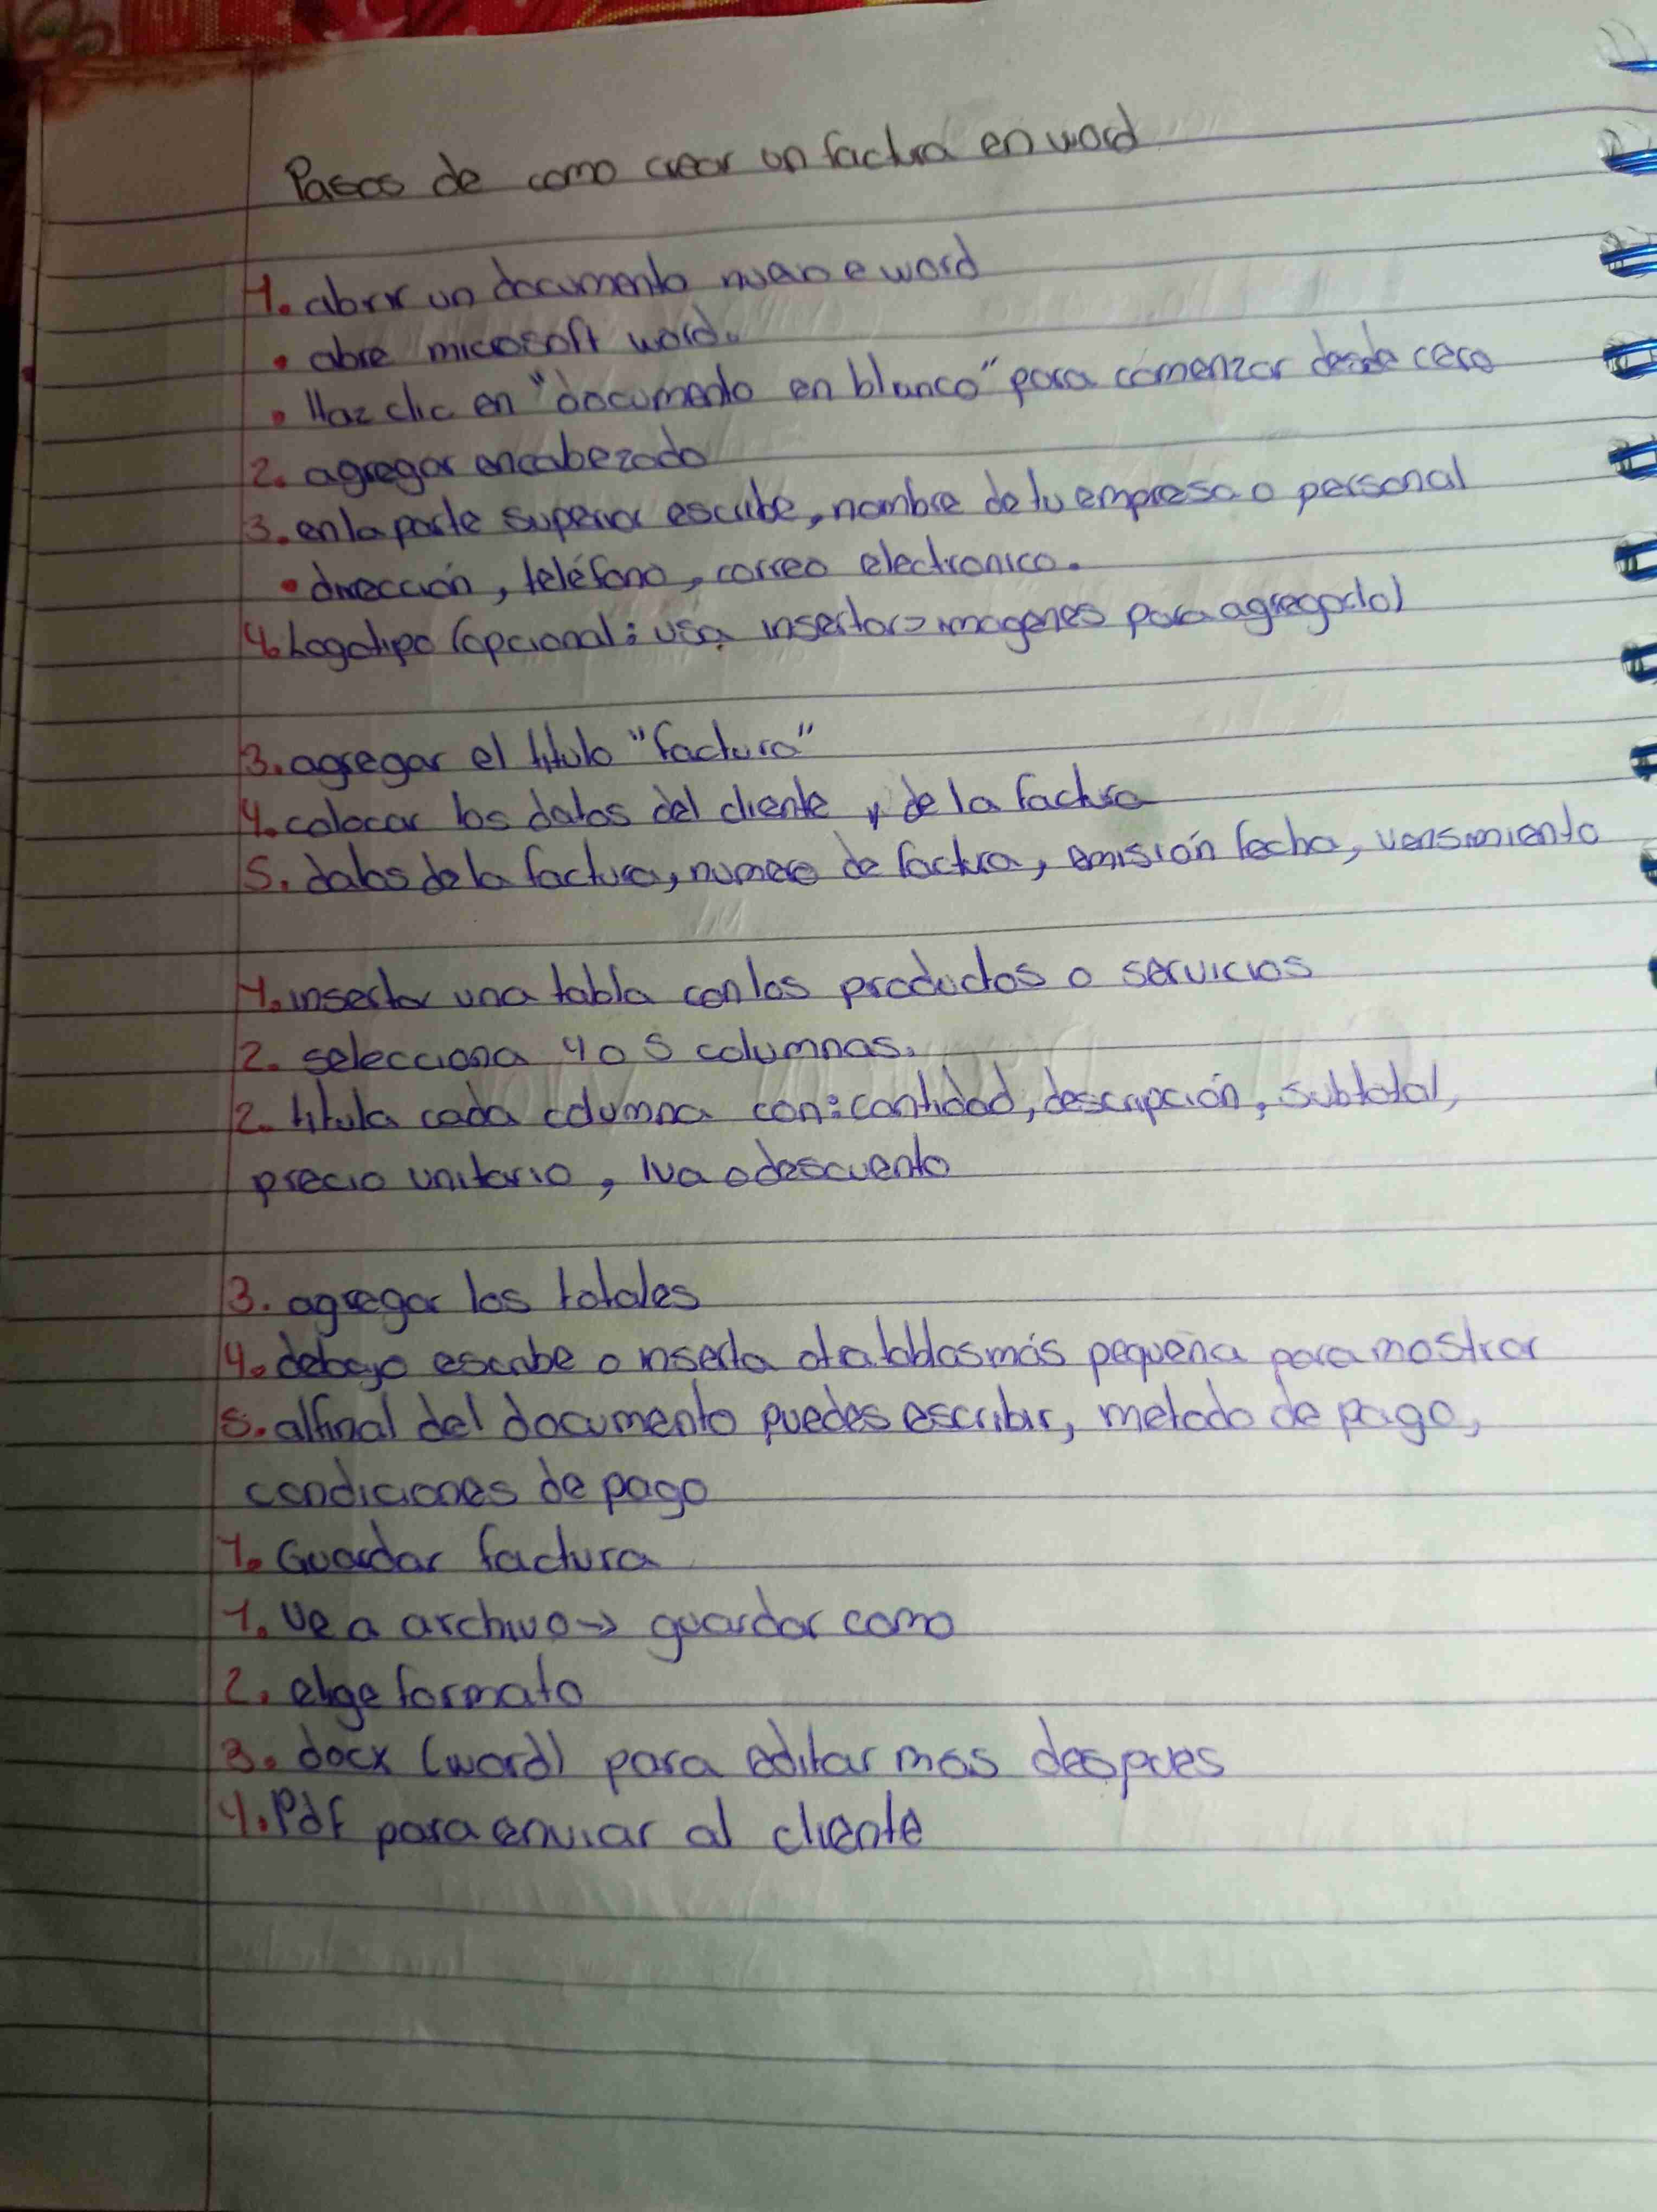 Pasos de como crear un factura en word
1. abrir un documento nuevo e word
• abre microsoft word.
• Haz clic en "documento en blanco" para comenzar desde cero
2. agregar encabezado
3. en la parte superior escribe, nombre de tu empresa o personal
• dirección, teléfono, correo electronico.
4. Logotipo (opcional: usa insertar > imagenes para agregarlo)
3. agregar el titulo "factura"
4. colocar los datos del cliente y de la factura
5. datos de la factura, numero de factura, emisión fecha, vensimiento
1. insertar una tabla con los productos o servicios
2. selecciona 4 o 5 columnas.
2. titula cada columna con: cantidad, descripción, subtotal,
precio unitario, iva o descuento
3. agregar los totales
4. debajo escribe o inserta otra tablas más pequeña para mostrar
5. al final del documento puedes escribir, metodo de pago,
condiciones de pago
1. Guardar factura
1. ve a archivo → guardar como
2. elige formato
3. docx (word) para editar mas despues
4. Pdf para enviar al cliente